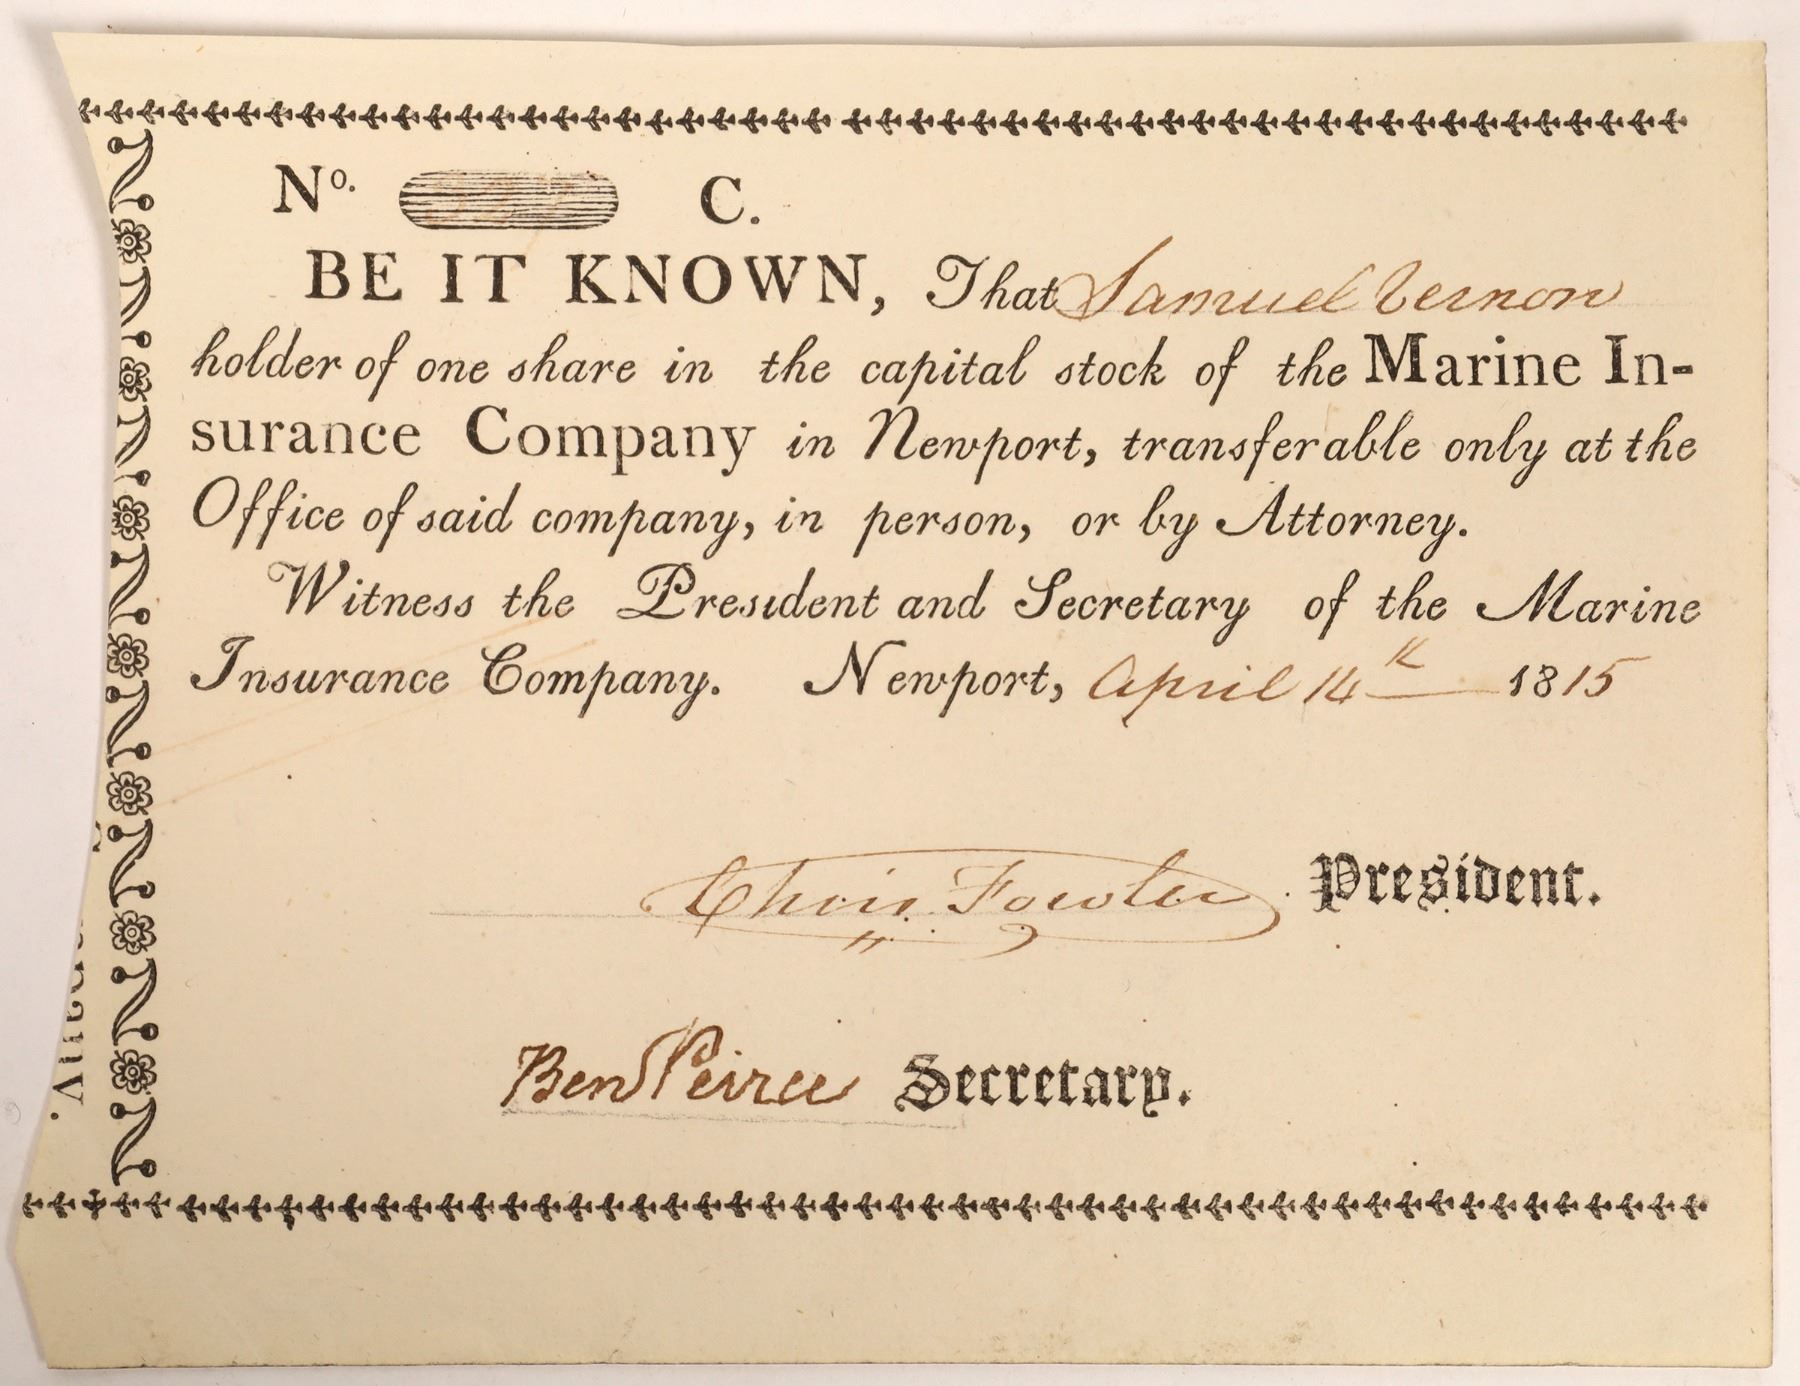 No. C.
BE IT KNOWN, That Samuel Vernon
holder of one share in the capital stock of the Marine In-
surance Company in Newport, transferable only at the
Office of said company, in person, or by Attorney.
Witness the President and Secretary of the Marine
Insurance Company. Newport, April 14th 1815
Chris. Fowler President.
Ben Peirce Secretary.